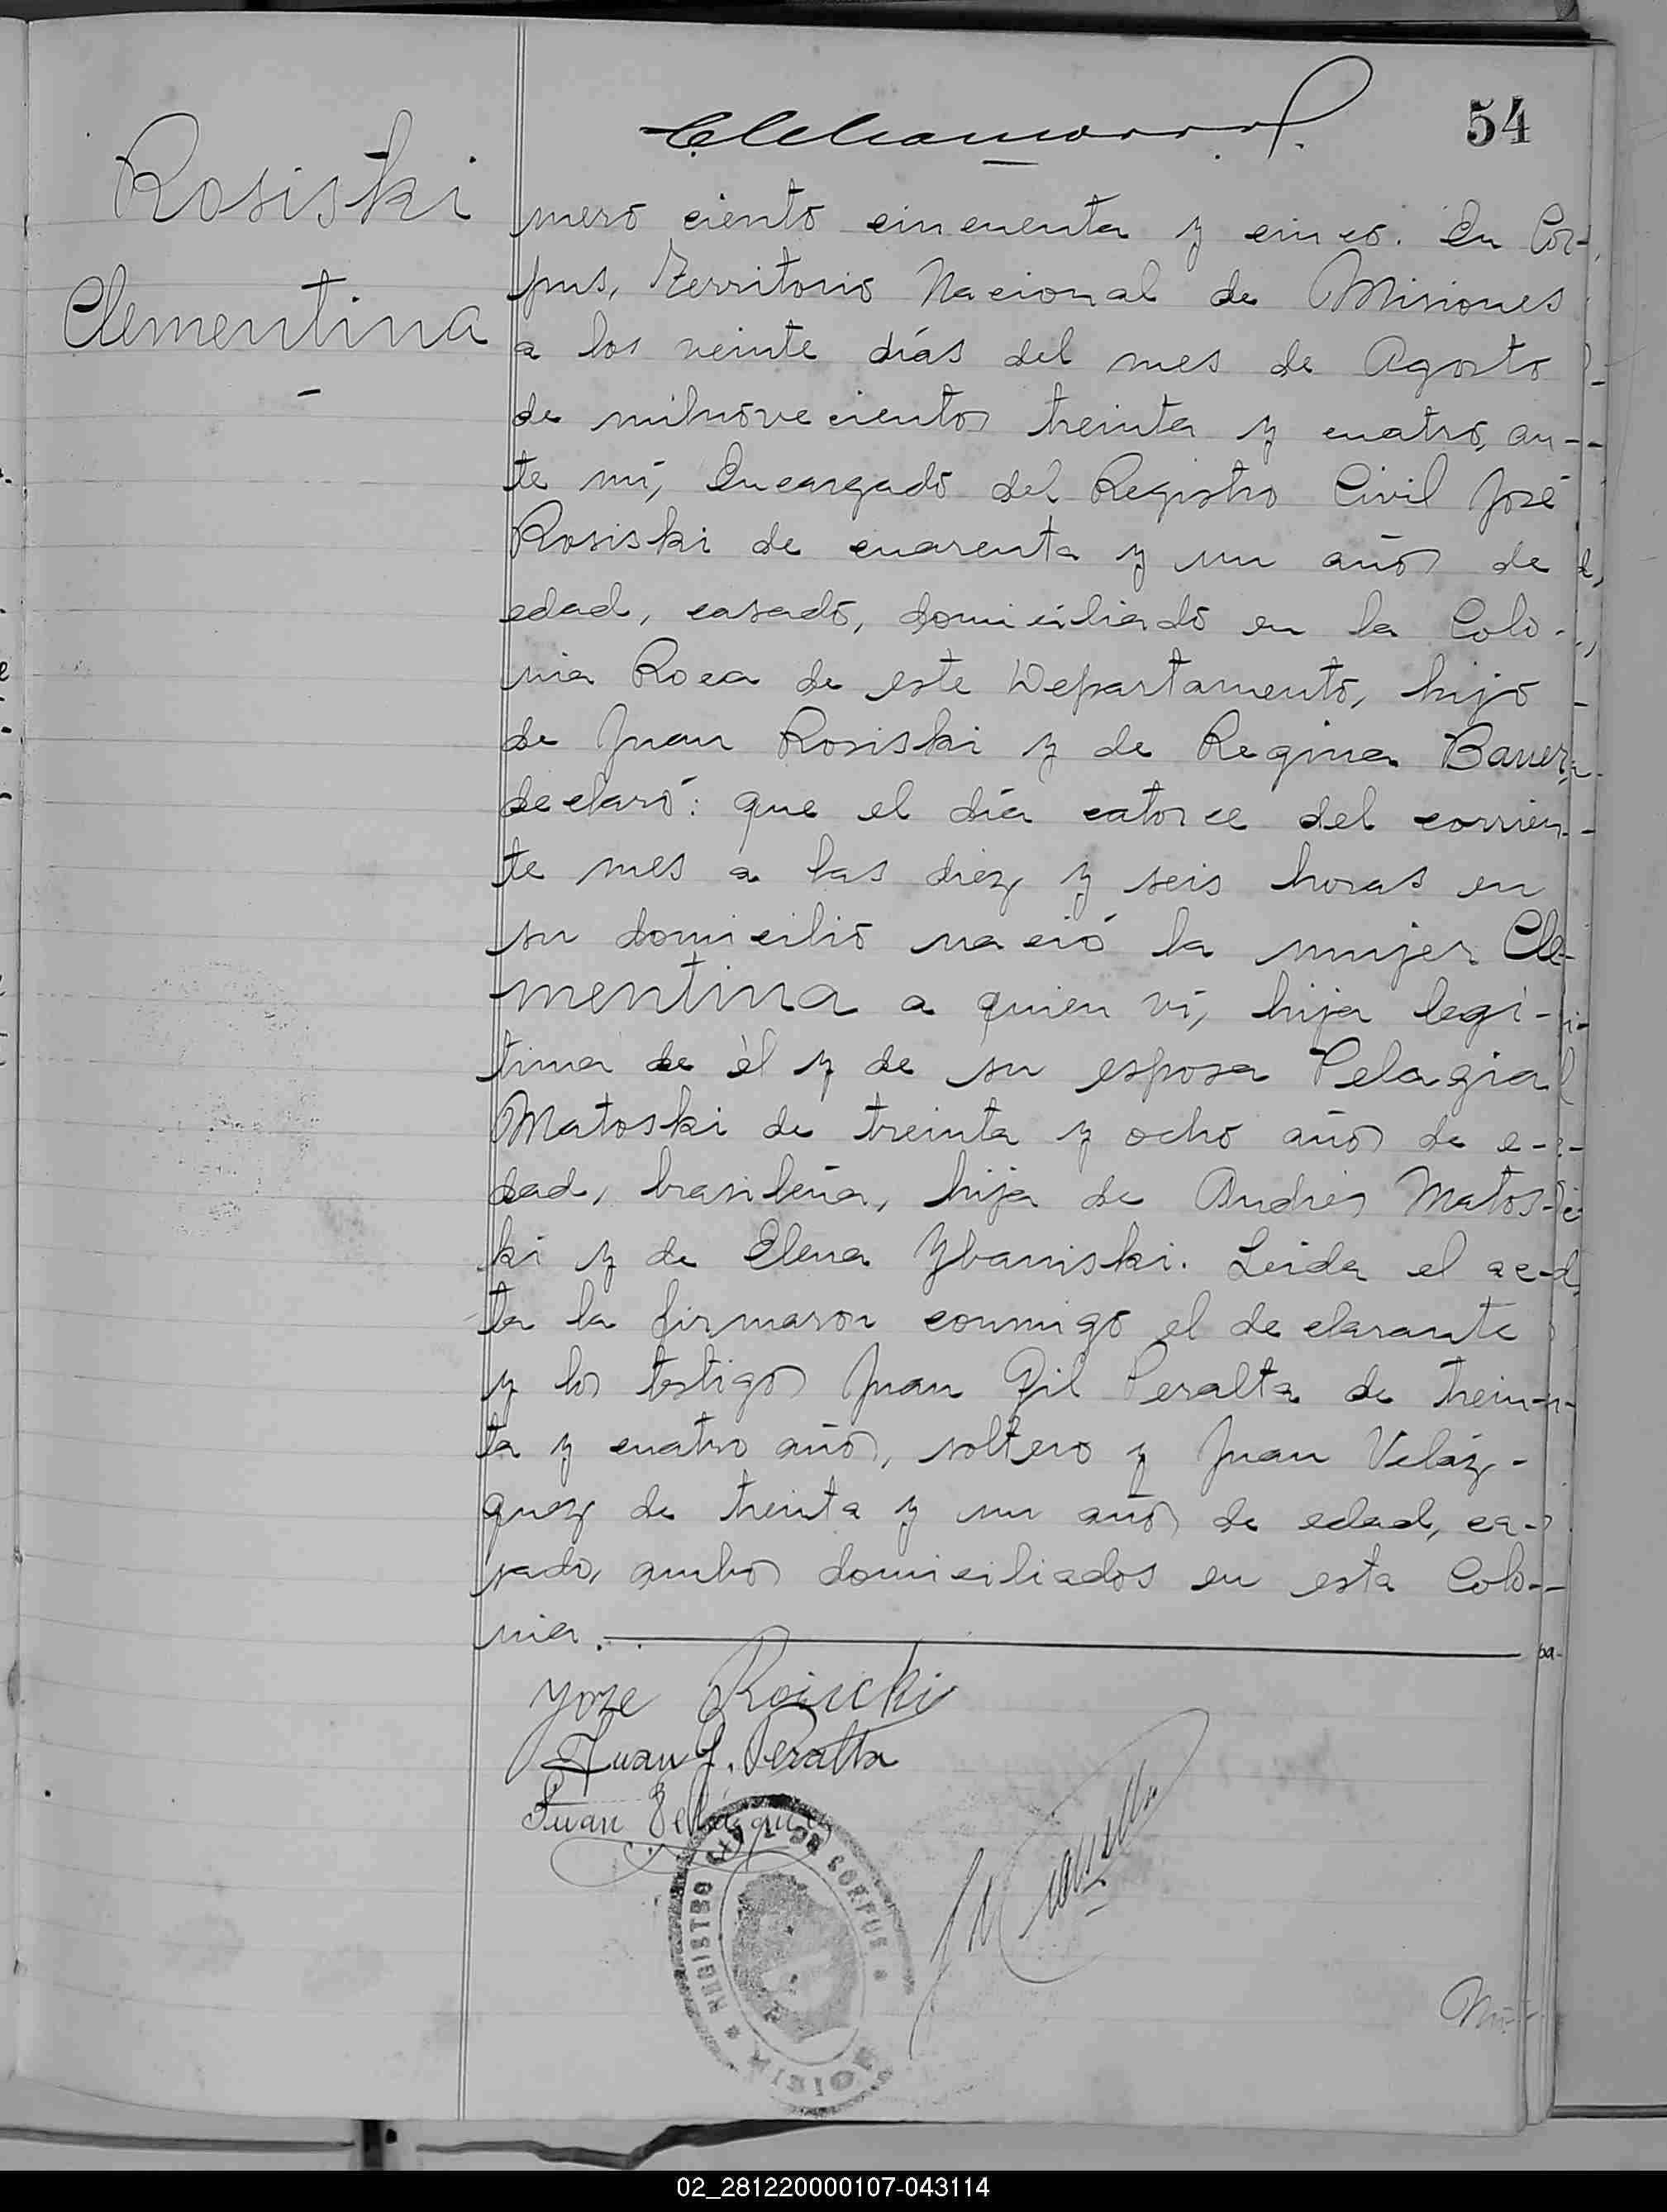 54
Rosiski
Clementina
mero ciento cincuenta y cinco. En Cor-
pus, Territorio Nacional de Misiones
a los veinte días del mes de Agosto
de milnovecientos treinta y cuatro, an-
te mi, Encargado del Registro Civil José
Rosiski de cuarenta y un años de
edad, casado, domiciliado en la Colo-
nia Roca de este Departamento, hijo
de Juan Rosiski y de Regina Bauer,
declaró: que el día catorce del corrien-
te mes a las diez y seis horas en
su domicilio nació la mujer Cle-
mentina a quien vi, hija legi-
tima de él y de su esposa Pelagia
Matoski de treinta y ocho años de e-
dad, brasileña, hija de Andrés Matos-
ki y de Elena Ybaniski. Leida el ac-
ta la firmaron conmigo el declarante
y los testigos Juan Gil Peralta de trein-
ta y cuatro años, soltero y Juan Veláz-
quez de treinta y un años de edad, ca-
sado, ambos domiciliados en esta Colo-
nia.
Yoze Rosicki
Juan G. Peralta
Juan Velázquez
REGISTRO CIVIL DE CORPUS
MISIONES
02_281220000107-043114